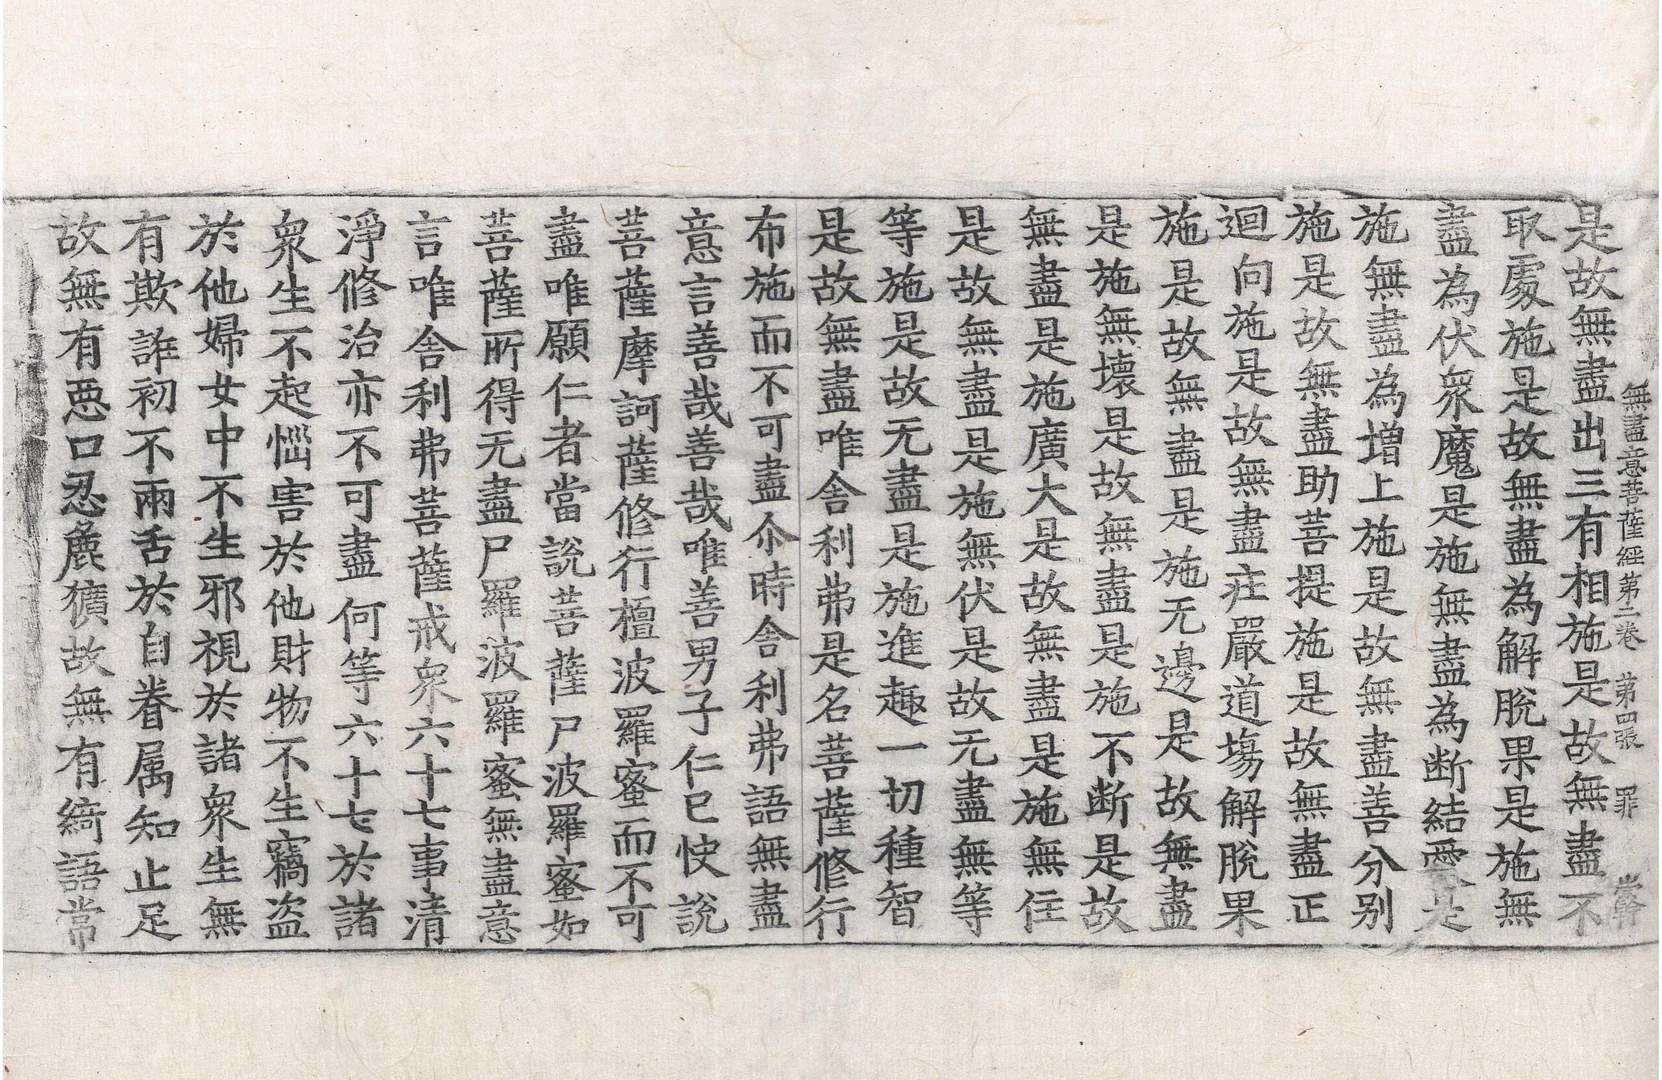 無盡意菩薩經第二卷 第四張 罪
是故無盡出三有相施是故無盡不
取處施是故無盡為解脫果是施無
盡為伏眾魔是施無盡為断結是
施無盡為增上施是故無盡善分別
施是故無盡助菩提施是故無盡正
迴向施是故無盡庄嚴道場解脫果
施是故無盡是施无邊是故無盡
是施無壞是故無盡是施不断是故
無盡是施廣大是故無盡是施無住
是故無盡是施無伏是故无盡無等
等施是故无盡是施進趣一切種智
是故無盡唯舍利弗是名菩薩修行
布施而不可盡尒時舍利弗語無盡
意言善哉善哉唯善男子仁已快說
菩薩摩訶薩修行檀波羅蜜而不可
盡唯願仁者當說菩薩尸波羅蜜如
菩薩所得无盡尸羅波羅蜜無盡意
言唯舍利弗菩薩戒眾六十七事清
淨修治亦不可盡何等六十七於諸
眾生不起惱害於他財物不生竊盜
於他婦女中不生邪視於諸眾生無
有欺誑初不兩舌於自眷属知止足
故無有惡口忍麁獷故無有綺語常